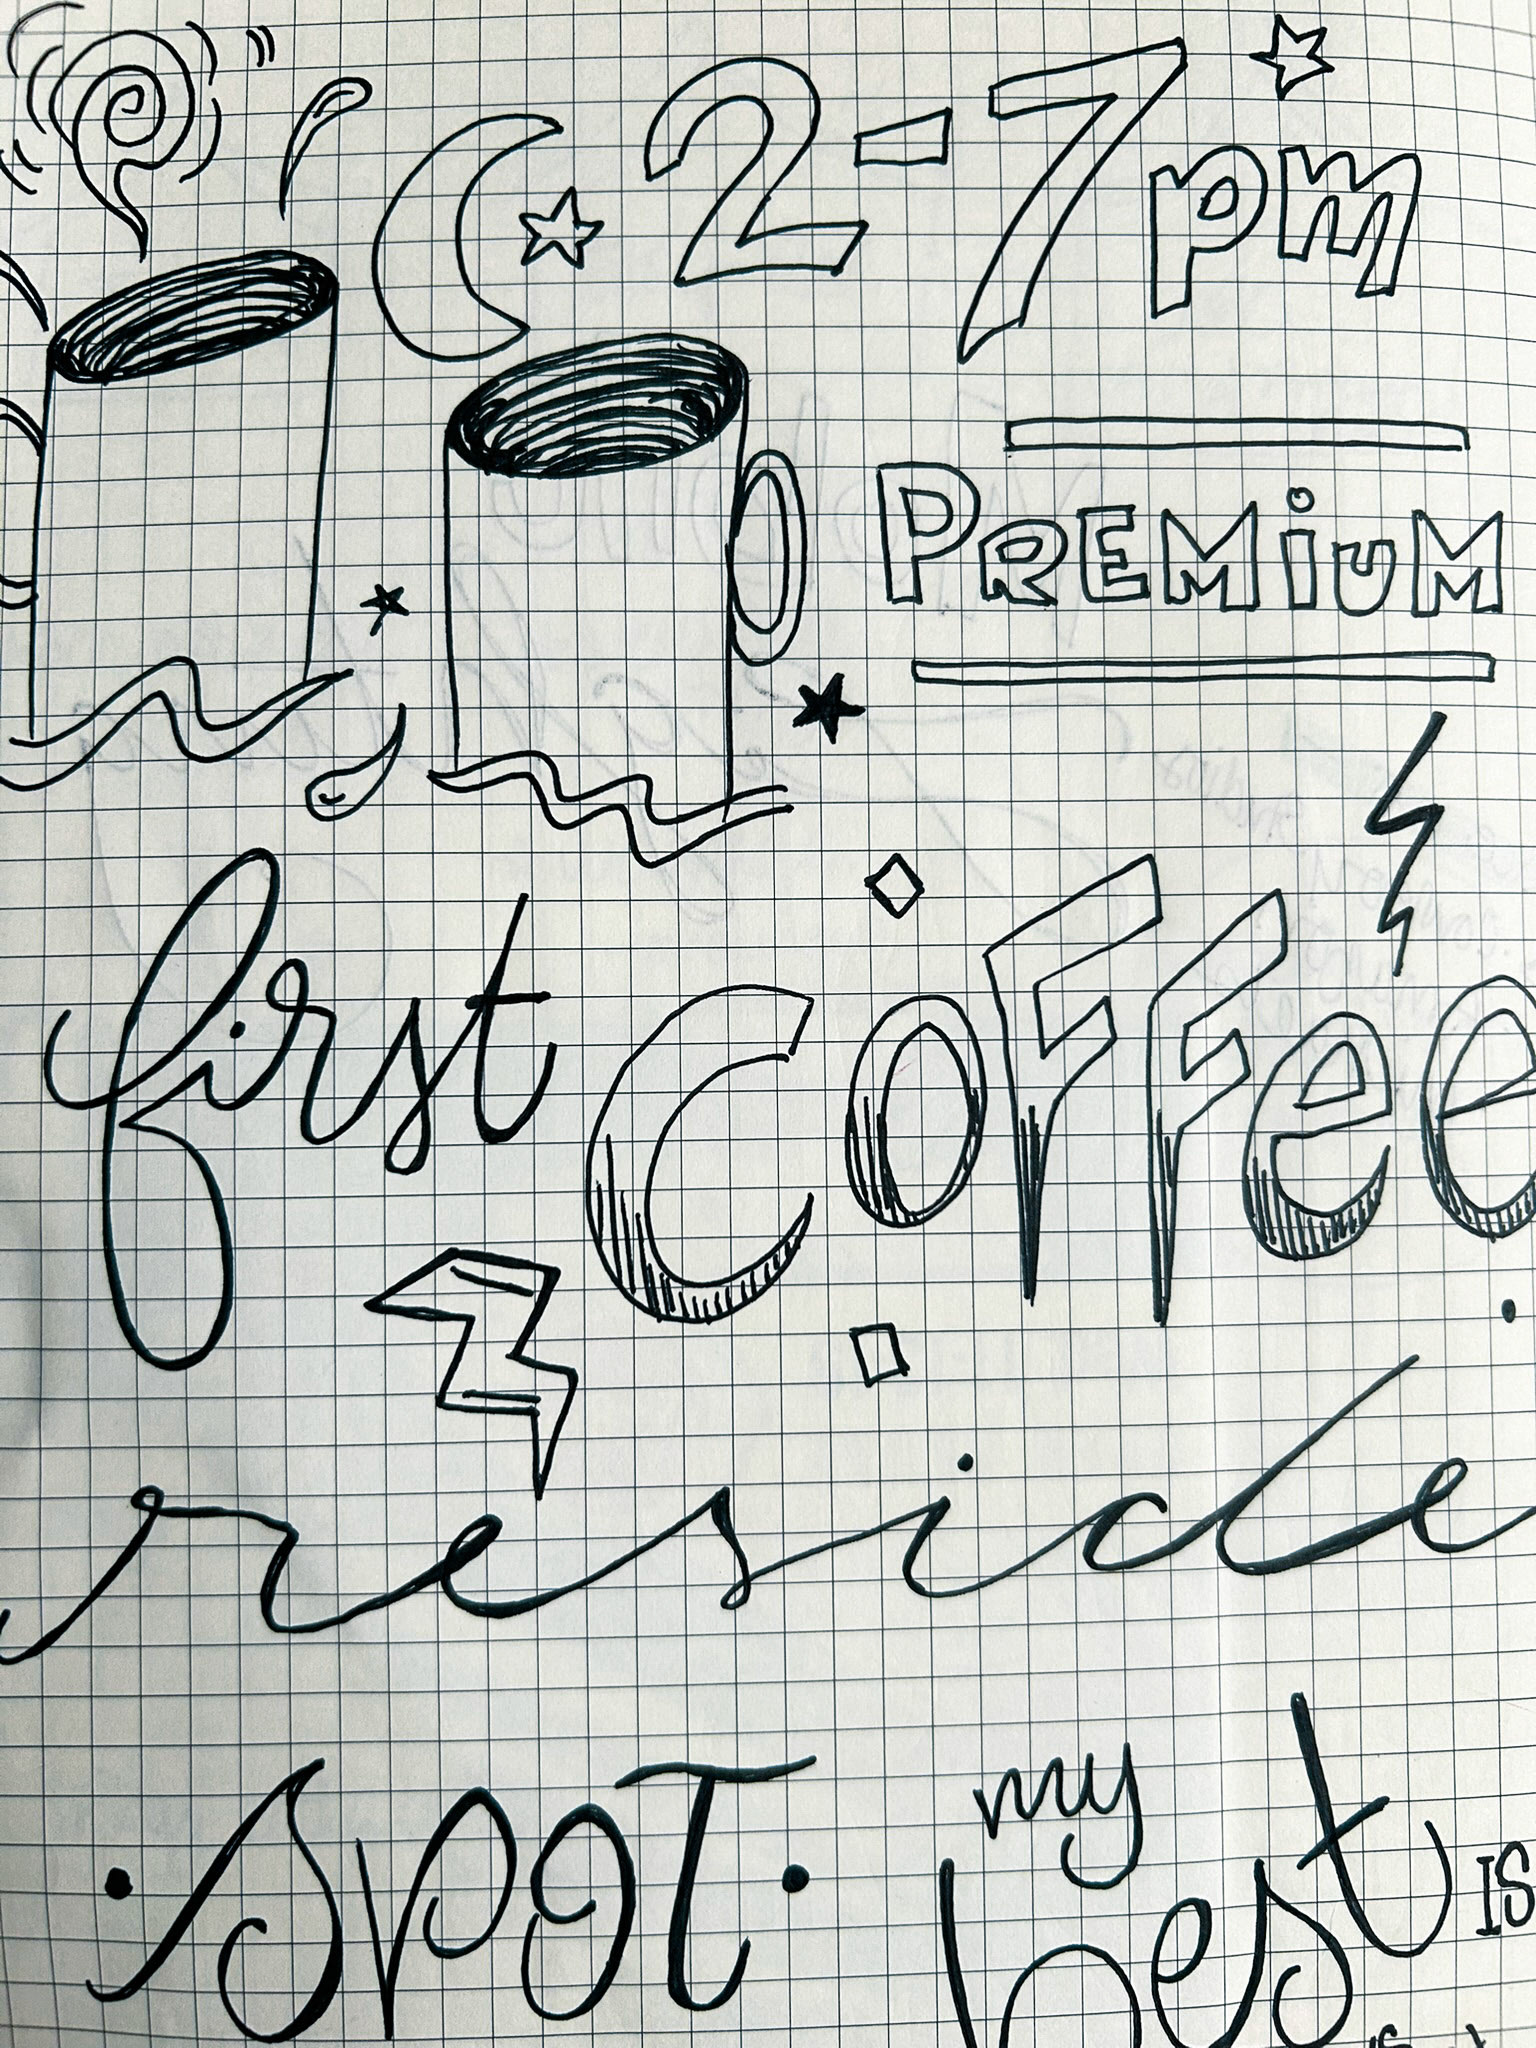 2-7pm
PREMiUM
first coffee
reside
• SPOT •
my
best IS